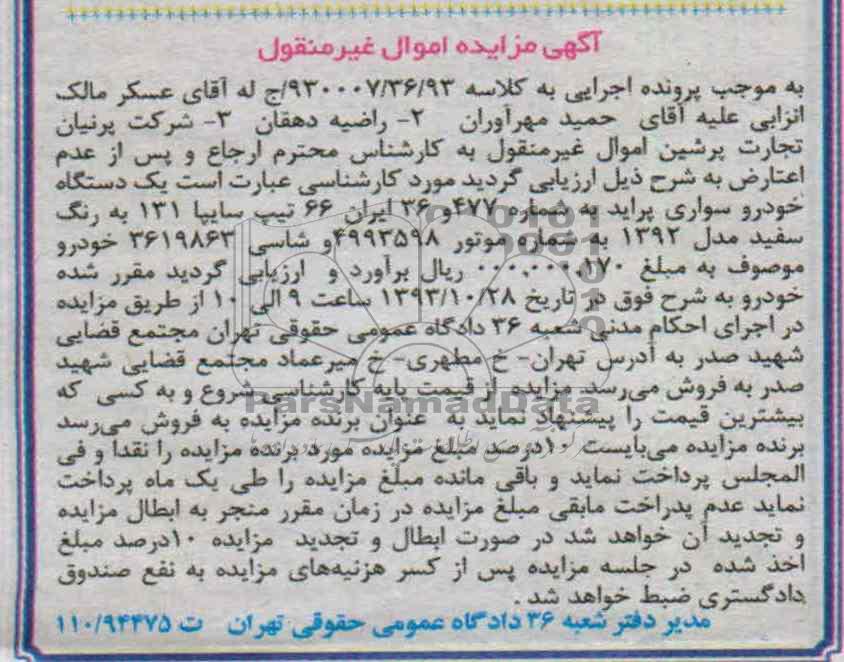 آگهی مزایده اموال غیرمنقول
به موجب پرونده اجرایی به کلاسه ۹۳۰۰۰۷/۳۶/۹۳/ج له آقای عسکر مالک
انزابی علیه آقای حمید مهرآوران ۲- راضیه دهقان ۳- شرکت پرنیان
تجارت پرشین اموال غیرمنقول به کارشناس محترم ارجاع و پس از عدم
اعتارض به شرح ذیل ارزیابی گردید مورد کارشناسی عبارت است یک دستگاه
خودرو سواری پراید به شماره ۴۷۷و ۳۶ ایران ۶۶ تیپ سایپا ۱۳۱ به رنگ
سفید مدل ۱۳۹۲ به شماره موتور ۴۹۹۳۵۹۸و شاسی ۳۶۱۹۸۶۳ خودرو
موصوف به مبلغ ۰۰۰.۰۰۰.۱۷۰ ریال برآورد و ارزیابی گردید مقرر شده
خودرو به شرح فوق در تاریخ ۱۳۹۳/۱۰/۲۸ ساعت ۹ الی ۱۰ از طریق مزایده
در اجرای احکام مدنی شعبه ۳۶ دادگاه عمومی حقوقی تهران مجتمع قضایی
شهید صدر به آدرس تهران- خ مطهری- خ میرعماد مجتمع قضایی شهید
صدر به فروش می‌رسد. مزایده از قیمت پایه کارشناسی شروع و به کسی که
ParsNamadData
بیشترین قیمت را پیشنهاد نماید به عنوان برنده مزایده به فروش می‌رسد
برنده مزایده می‌بایست ۱۰درصد مبلغ مزایده مورد برنده مزایده را نقدا و فی
المجلس پرداخت نماید و باقی مانده مبلغ مزایده را طی یک ماه پرداخت
نماید عدم پدراخت مابقی مبلغ مزایده در زمان مقرر منجر به ابطال مزایده
و تجدید آن خواهد شد در صورت ابطال و تجدید مزایده ۱۰درصد مبلغ
اخذ شده در جلسه مزایده پس از کسر هزنیه‌های مزایده به نفع صندوق
دادگستری ضبط خواهد شد.
مدیر دفتر شعبه ۳۶ دادگاه عمومی حقوقی تهران ت ۱۱۰/۹۴۴۷۵